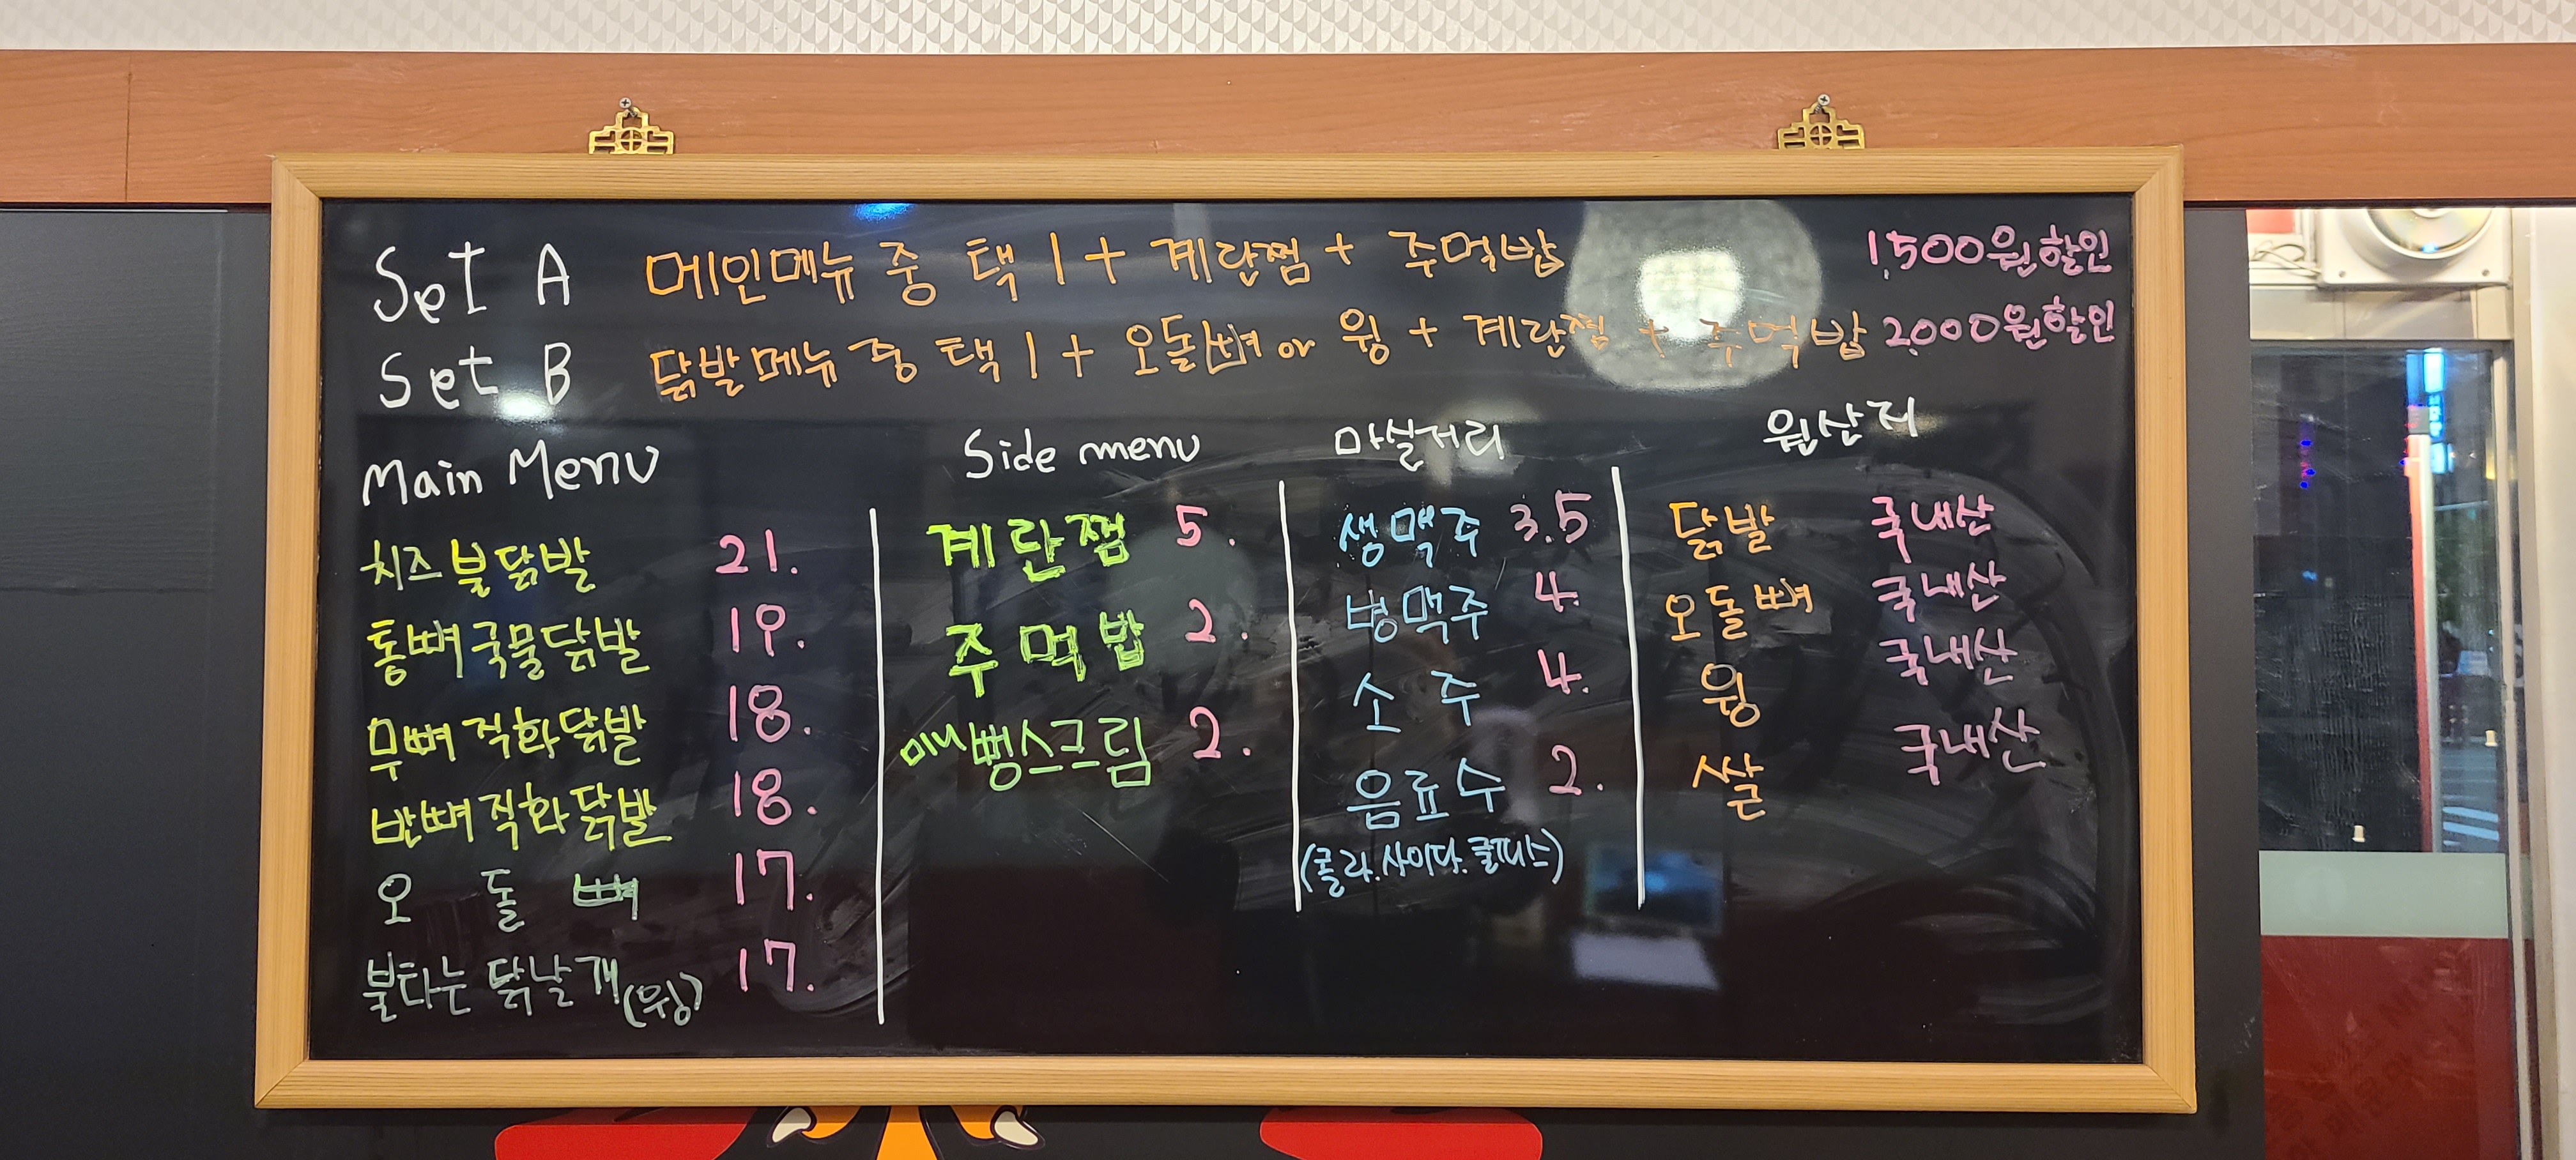 Set A 메인메뉴 중 택 1 + 계란찜 + 주먹밥 1,500원할인
Set B 닭발메뉴 중 택 1 + 오돌뼈 or 윙 + 계란찜 + 주먹밥 2,000원할인
Main Menu
치즈불닭발 21.
통뼈국물닭발 19.
무뼈직화닭발 18.
반뼈직화닭발 18.
오 돌 뼈 17.
불타는 닭날개(윙) 17.
Side menu
계란찜 5.
주먹밥 2.
미니뻥스크림 2.
마실거리
생맥주 3.5
병맥주 4.
소 주 4.
음료수 2.
(콜라.사이다.쿨피스)
원산지
닭발 국내산
오돌뼈 국내산
윙 국내산
쌀 국내산